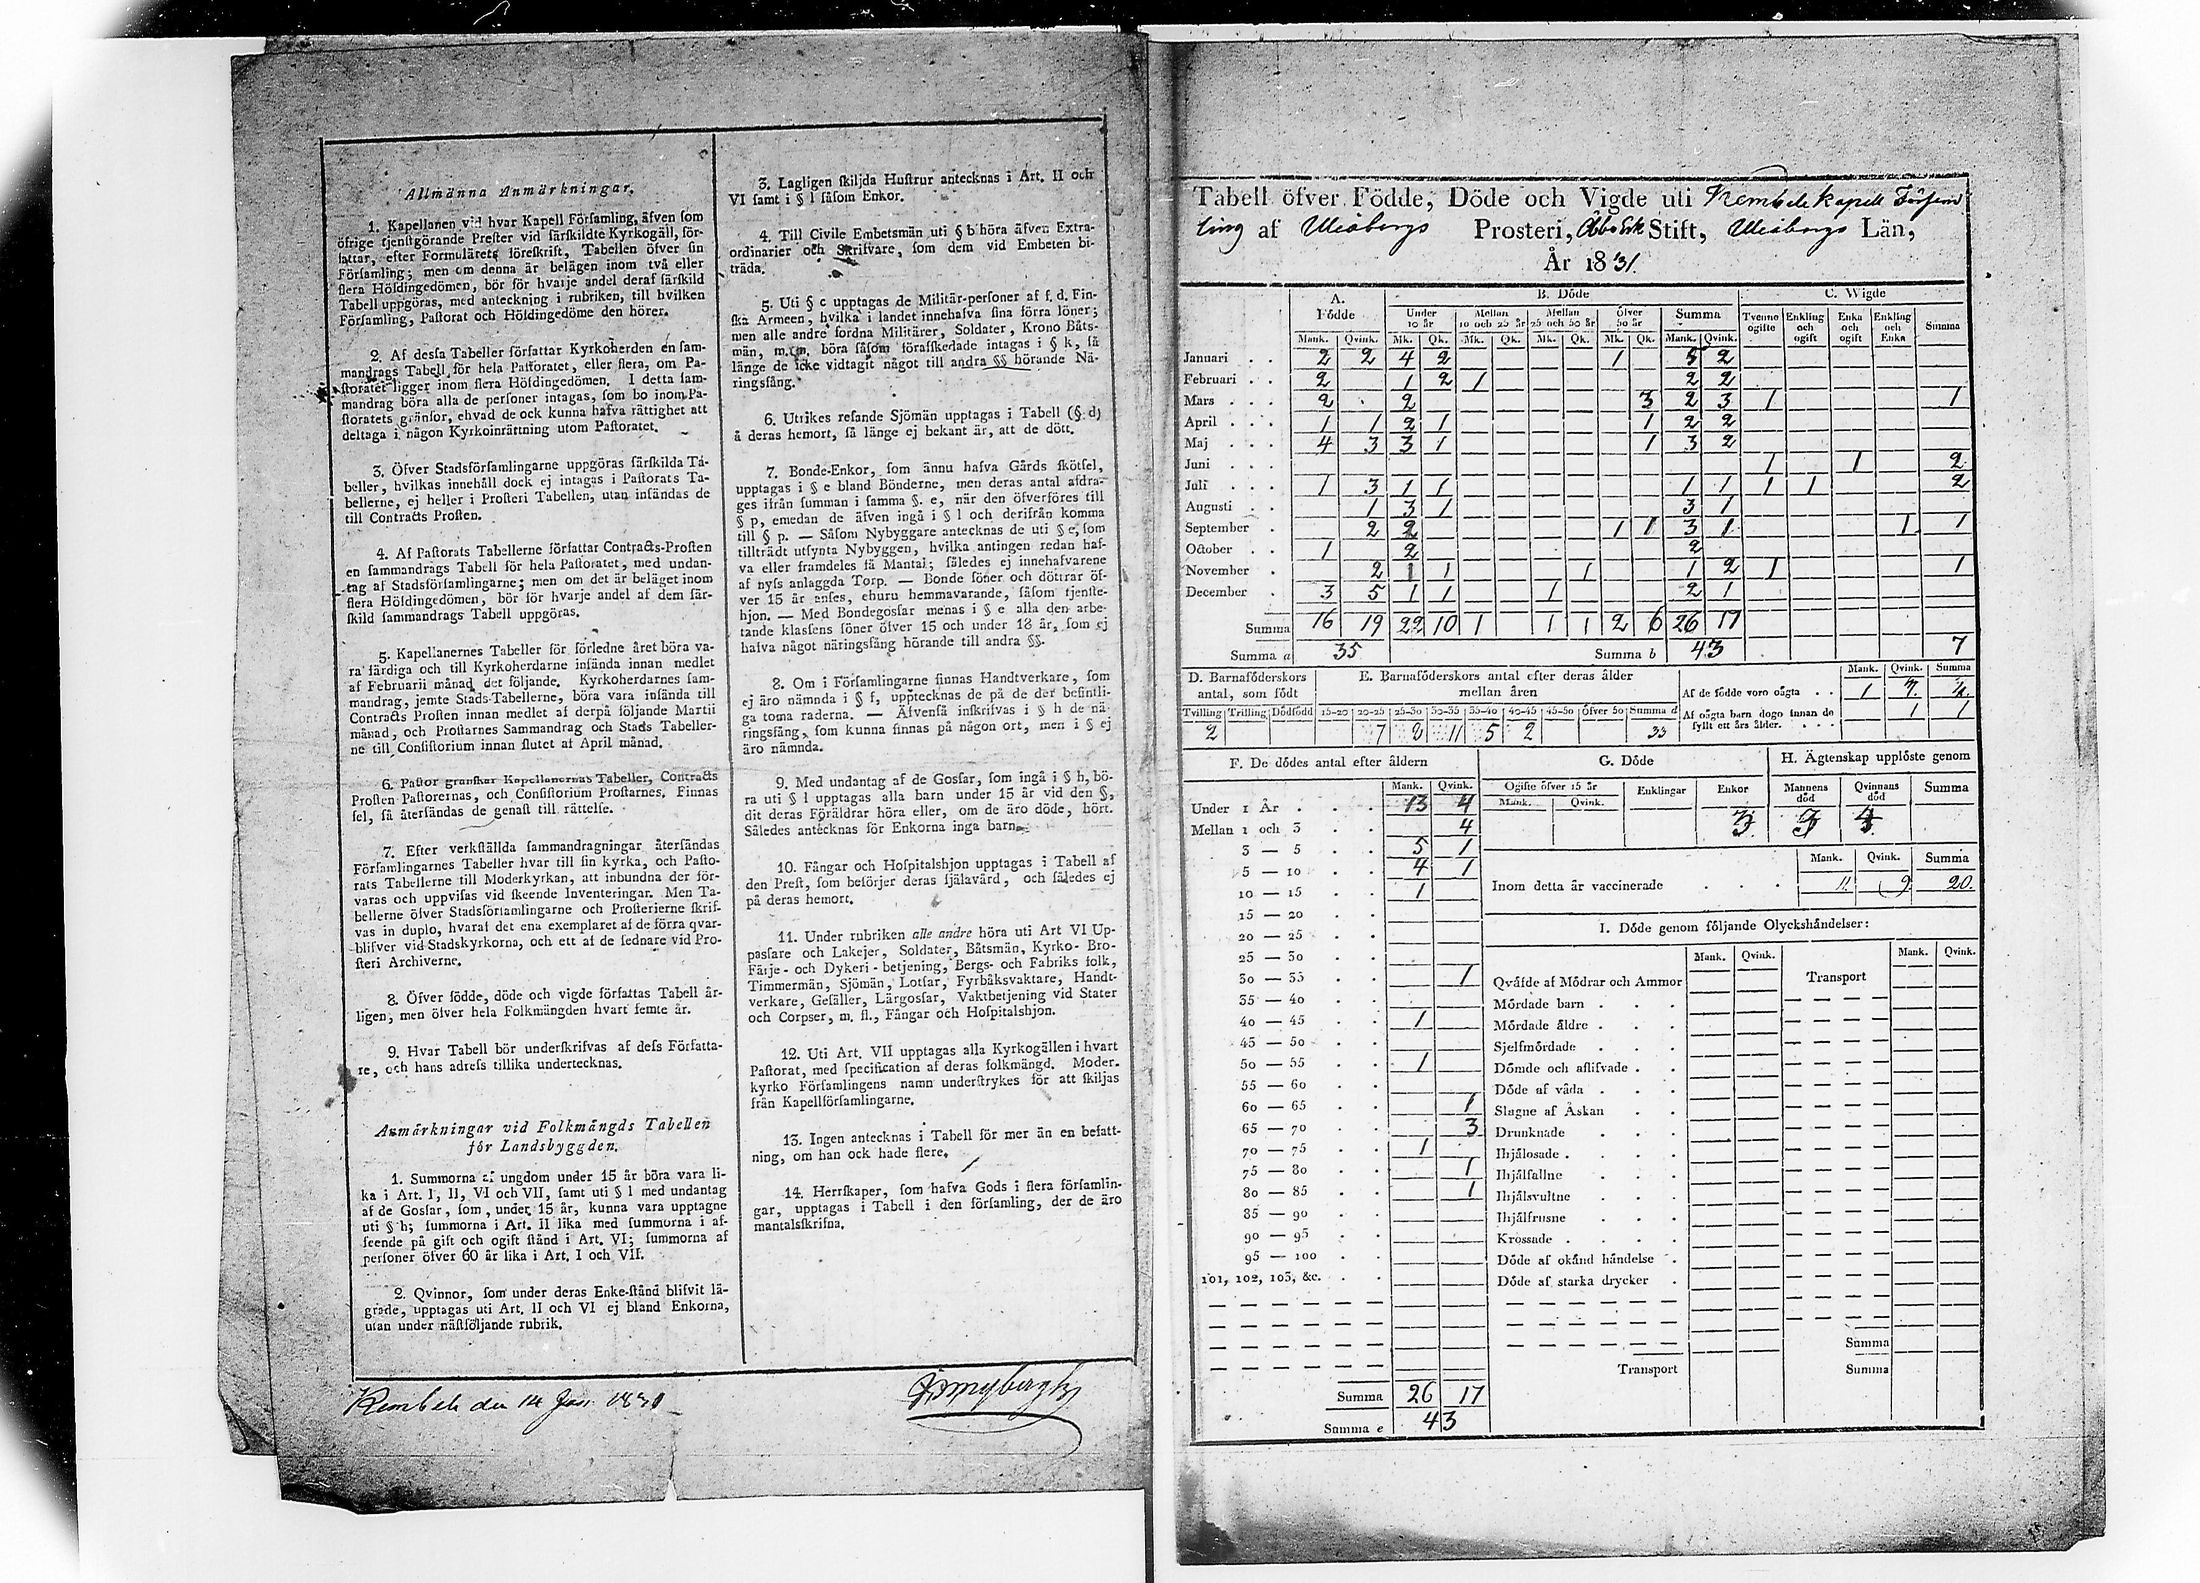 Allmänna Anmärkningar.
1. Kapellanen vid hvar Kapell Församling, äfven som
öfrige tjenstgörande Prester vid särskildte Kyrkogäll, för-
fattar, efter Formulärets föreskrift, Tabellen öfver sin
Församling; men om denna är belägen inom två eller
flera Höfdingedömen, bör för hvarje andel deraf särskild
Tabell uppgöras, med anteckning i rubriken, till hvilken
Församling, Pastorat och Höfdingedöme den hörer.
2. Af dessa Tabeller författar Kyrkoherden en sam-
mandrags Tabell för hela Pastoratet, eller flera, om Pa-
storatet ligger inom flera Höfdingedömen. I detta sam-
mandrag böra alla de personer intagas, som bo inom Pa-
storatets gränsor, ehvad de ock kunna hafva rättighet att
deltaga i någon Kyrkoinrättning utom Pastoratet.
3. Öfver Stadsförsamlingarne uppgöras särskilda Ta-
beller, hvilkas innehåll dock ej intagas i Pastorats Ta-
bellerne, ej heller i Prosteri Tabellen, utan insändas de
till Contracts Prosten.
4. Af Pastorats Tabellerne författar Contracts-Prosten
en sammandrags Tabell för hela Pastoratet, med undan-
tag af Stadsförsamlingarne; men om det är beläget inom
flera Höfdingedömen, bör för hvarje andel af dem sär-
skild sammandrags Tabell uppgöras.
5. Kapellanernes Tabeller för förledne året böra va-
ra färdiga och till Kyrkoherdarne insända innan medlet
af Februarii månad det följande. Kyrkoherdarnes sam-
mandrag, jemte Stads-Tabellerne, böra vara insända till
Contracts Prosten innan medlet af derpå följande Martii
månad, och Prostarnes Sammandrag och Stads Tabeller-
ne till Consistorium innan slutet af April månad.
6. Pastor granskar Kapellanernas Tabeller, Contracts
Prosten Pastorernas, och Consistorium Prostarnes. Finnas
fel, så återsändas de genast till rättelse.
7. Efter verkställda sammandragningar återsändas
Församlingarnes Tabeller hvar till sin kyrka, och Pasto-
rats Tabellerne till Moderkyrkan, att inbundna der för-
varas och uppvisas vid skeende Inventeringar. Men Ta-
bellerne öfver Stadsförsamlingarne och Prosterierne skrif-
vas in duplo, hvaraf det ena exemplaret af de förra qvar-
blifver vid Stadskyrkorna, och ett af de sednare vid Pro-
steri Archiverne.
8. Öfver födde, döde och vigde författas Tabell år-
ligen; men öfver hela Folkmängden hvart femte år.
9. Hvar Tabell bör underskrifvas af dess Författa-
re, och hans adress tillika undertecknas.
Anmärkningar vid Folkmängds Tabellen
för Landsbyggden.
1. Summorna af ungdom under 15 år böra vara li-
ka i Art. I, II, VI och VII, samt uti § l med undantag
af de Gossar, som, under 15 år, kunna vara upptagne
uti § h; summorna i Art. II lika med summorna i af-
seende på gift och ogift stånd i Art. VI; summorna af
personer öfver 60 år lika i Art. I och VII.
2. Qvinnor, som under deras Enke-stånd blifvit lä-
grade, upptagas uti Art. II och VI ej bland Enkorna,
utan under nästföljande rubrik.
3. Lagligen skiljda Hustrur antecknas i Art. II och
VI samt i § l såsom Enkor.
4. Till Civile Embetsmän uti § b höra äfven Extra-
ordinarier och Skrifvare, som dem vid Embeten bi-
träda.
5. Uti § c upptagas de Militär-personer af f. d. Fin-
ska Armeen, hvilka i landet innehafva sina förra löner;
men alle andre fordna Militärer, Soldater, Krono Båts-
män, m. m. böra såsom förafskedade intagas i § k, så
länge de icke vidtagit något till andra §§ hörande Nä-
ringsfång.
6. Utrikes resande Sjömän upptagas i Tabell (§. d)
å deras hemort, så länge ej bekant är, att de dött.
7. Bonde-Enkor, som ännu hafva Gårds skötsel,
upptagas i § e bland Bönderne, men deras antal afdra-
ges ifrån summan i samma §. e, när den öfverföres till
§ p, emedan de äfven ingå i § l och derifrån komma
till § p. — Såsom Nybyggare antecknas de uti § e, som
tillträdt utsynta Nybyggen, hvilka antingen redan haf-
va eller framdeles få Mantal; således ej innehafvarene
af nyss anlaggda Torp. — Bonde söner och döttrar öf-
ver 15 år anses, ehuru hemmavarande, såsom tjenste-
hjon. — Med Bondegossar menas i § e alla den arbe-
tande klassens söner öfver 15 och under 18 år, som ej
hafva något näringsfång hörande till andra §§.
8. Om i Församlingarne finnas Handtverkare, som
ej äro nämnda i § f, upptecknas de på de der befintli-
ga toma raderna. — Äfvenså inskrifvas i § h de nä-
ringsfång, som kunna finnas på någon ort, men i § ej
äro nämnda.
9. Med undantag af de Gossar, som ingå i § h, bö-
ra uti § l upptagas alla barn under 15 år vid den §,
dit deras Föräldrar höra eller, om de äro döde, hört.
Således antecknas för Enkorna inga barn.
10. Fångar och Hospitalshjon upptagas i Tabell af
den Prest, som besörjer deras själavård, och således ej
på deras hemort.
11. Under rubriken alle andre höra uti Art VI Up-
passare och Lakejer, Soldater, Båtsmän, Kyrko- Bro-
Färje- och Dykeri-betjening, Bergs- och Fabriks folk,
Timmermän, Sjömän, Lotsar, Fyrbåksvaktare, Handt-
verkare, Gesäller, Lärgossar, Vaktbetjening vid Stater
och Corpser, m. fl., Fångar och Hospitalshjon.
12. Uti Art. VII upptagas alla Kyrkogällen i hvart
Pastorat, med specification af deras folkmängd. Moder-
kyrko Församlingens namn understrykes för att skiljas
från Kapellförsamlingarne.
13. Ingen antecknas i Tabell för mer än en befatt-
ning, om han ock hade flere.
14. Herrskaper, som hafva Gods i flera församlin-
gar, upptagas i Tabell i den församling, der de äro
mantalsskrifna.
Kembele den 14 Jan. 1831
Tabell öfver Födde, Döde och Vigde uti Kembele kapell Församl
ling af Uleåborgs Prosteri, Åbo Erk Stift, Uleåborgs Län,
År 1831.
A. Födde B. Döde C. Wigde
Under 10 år Mellan 10 och 25 år Mellan 25 och 50 år Öfver 50 år Summa Tvenne ogifte Enkling och ogift Enka och ogift Enkling och Enka Summa
Mank. Qvink. Mk. Qk. Mk. Qk. Mk. Qk. Mk. Qk. Mank. Qvink.
Januari 2 2 4 2 1 5 2
Februari 2 1 2 1 2 2
Mars 2 2 3 2 3 1 1
April 1 1 2 1 1 2 2
Maj 4 3 3 1 1 3 2
Juni 1 1 2
Juli 1 3 1 1 1 1 1 1 2
Augusti 1 3 1 3 1
September 2 2 1 1 3 1 1 1
October 1 2 2
November 2 1 1 1 1 2 1 1
December 3 5 1 1 1 2 1
Summa 16 19 22 10 1 1 1 2 6 26 17
Summa a 35 Summa b 43 7
D. Barnaföderskors antal, som födt
Tvilling Trilling Dödfödd
2
E. Barnaföderskors antal efter deras ålder mellan åren
15-20 20-25 25-30 30-35 35-40 40-45 45-50 Öfver 50 Summa d
7 8 11 5 2 33
Mank. Qvink. Summa
Af de födde voro oägta 1
Af oägta barn dogo innan de fyllt ett års ålder. 1 1
F. De dödes antal efter åldern
Mank. Qvink.
Under 1 År 13 4
Mellan 1 och 3 4
3 — 5 5 1
5 — 10 4 1
10 — 15 1
15 — 20
20 — 25
25 — 30
30 — 35 1
35 — 40
40 — 45 1
45 — 50
50 — 55 1
55 — 60
60 — 65 1
65 — 70 3
70 — 75 1
75 — 80 1
80 — 85 1
85 — 90
90 — 95
95 — 100
101, 102, 103, &c.
Summa 26 17
Summa e 43
G. Döde
Ogifte öfver 15 år Enklingar Enkor
Mank. Qvink.
3
H. Ägtenskap upplöste genom
Mannens död Qvinnans död Summa
Mank. Qvink. Summa
Inom detta år vaccinerade 11. 9 20.
I. Döde genom följande Olyckshändelser:
Mank. Qvink. Mank. Qvink.
Transport
Qväfde af Mödrar och Ammor
Mördade barn
Mördade äldre
Sjelfmördade
Dömde och aflifvade
Döde af våda
Slagne af Åskan
Drunknade
Ihjälosade
Ihjälfallne
Ihjälsvultne
Ihjälfrusne
Krossade
Döde af okänd händelse
Döde af starka drycker
Summa
Transport Summa